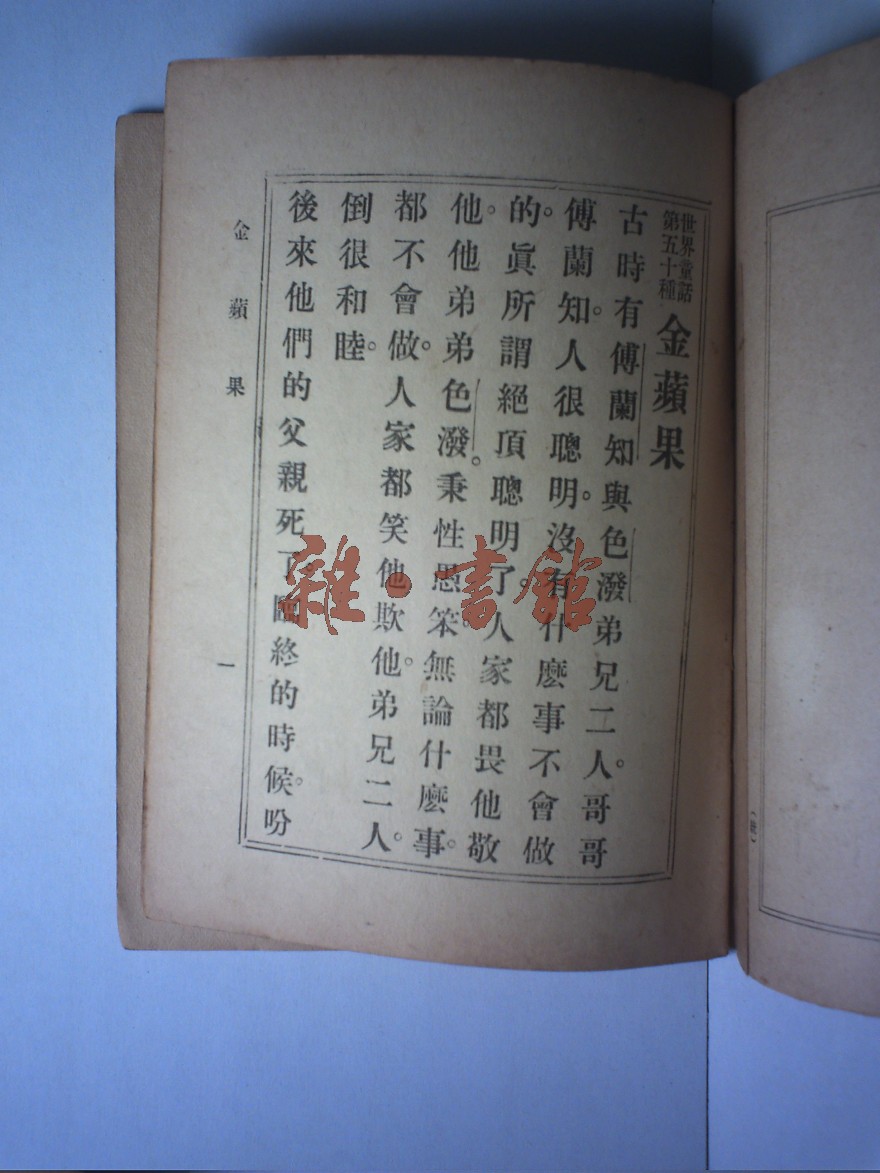 世界童話
第五十種
金蘋果
古時有傅蘭知與色潑弟兄二人。哥哥
傅蘭知。人很聰明。沒有什麽事不會做
的。眞所謂絕頂聰明了。人家都畏他敬
他。他弟弟色潑。秉性愚笨。無論什麽事。
都不會做。人家都笑他欺他。弟兄二人。
倒很和睦。
後來他們的父親死了。臨終的時候。吩
金蘋果
一
雜·書館